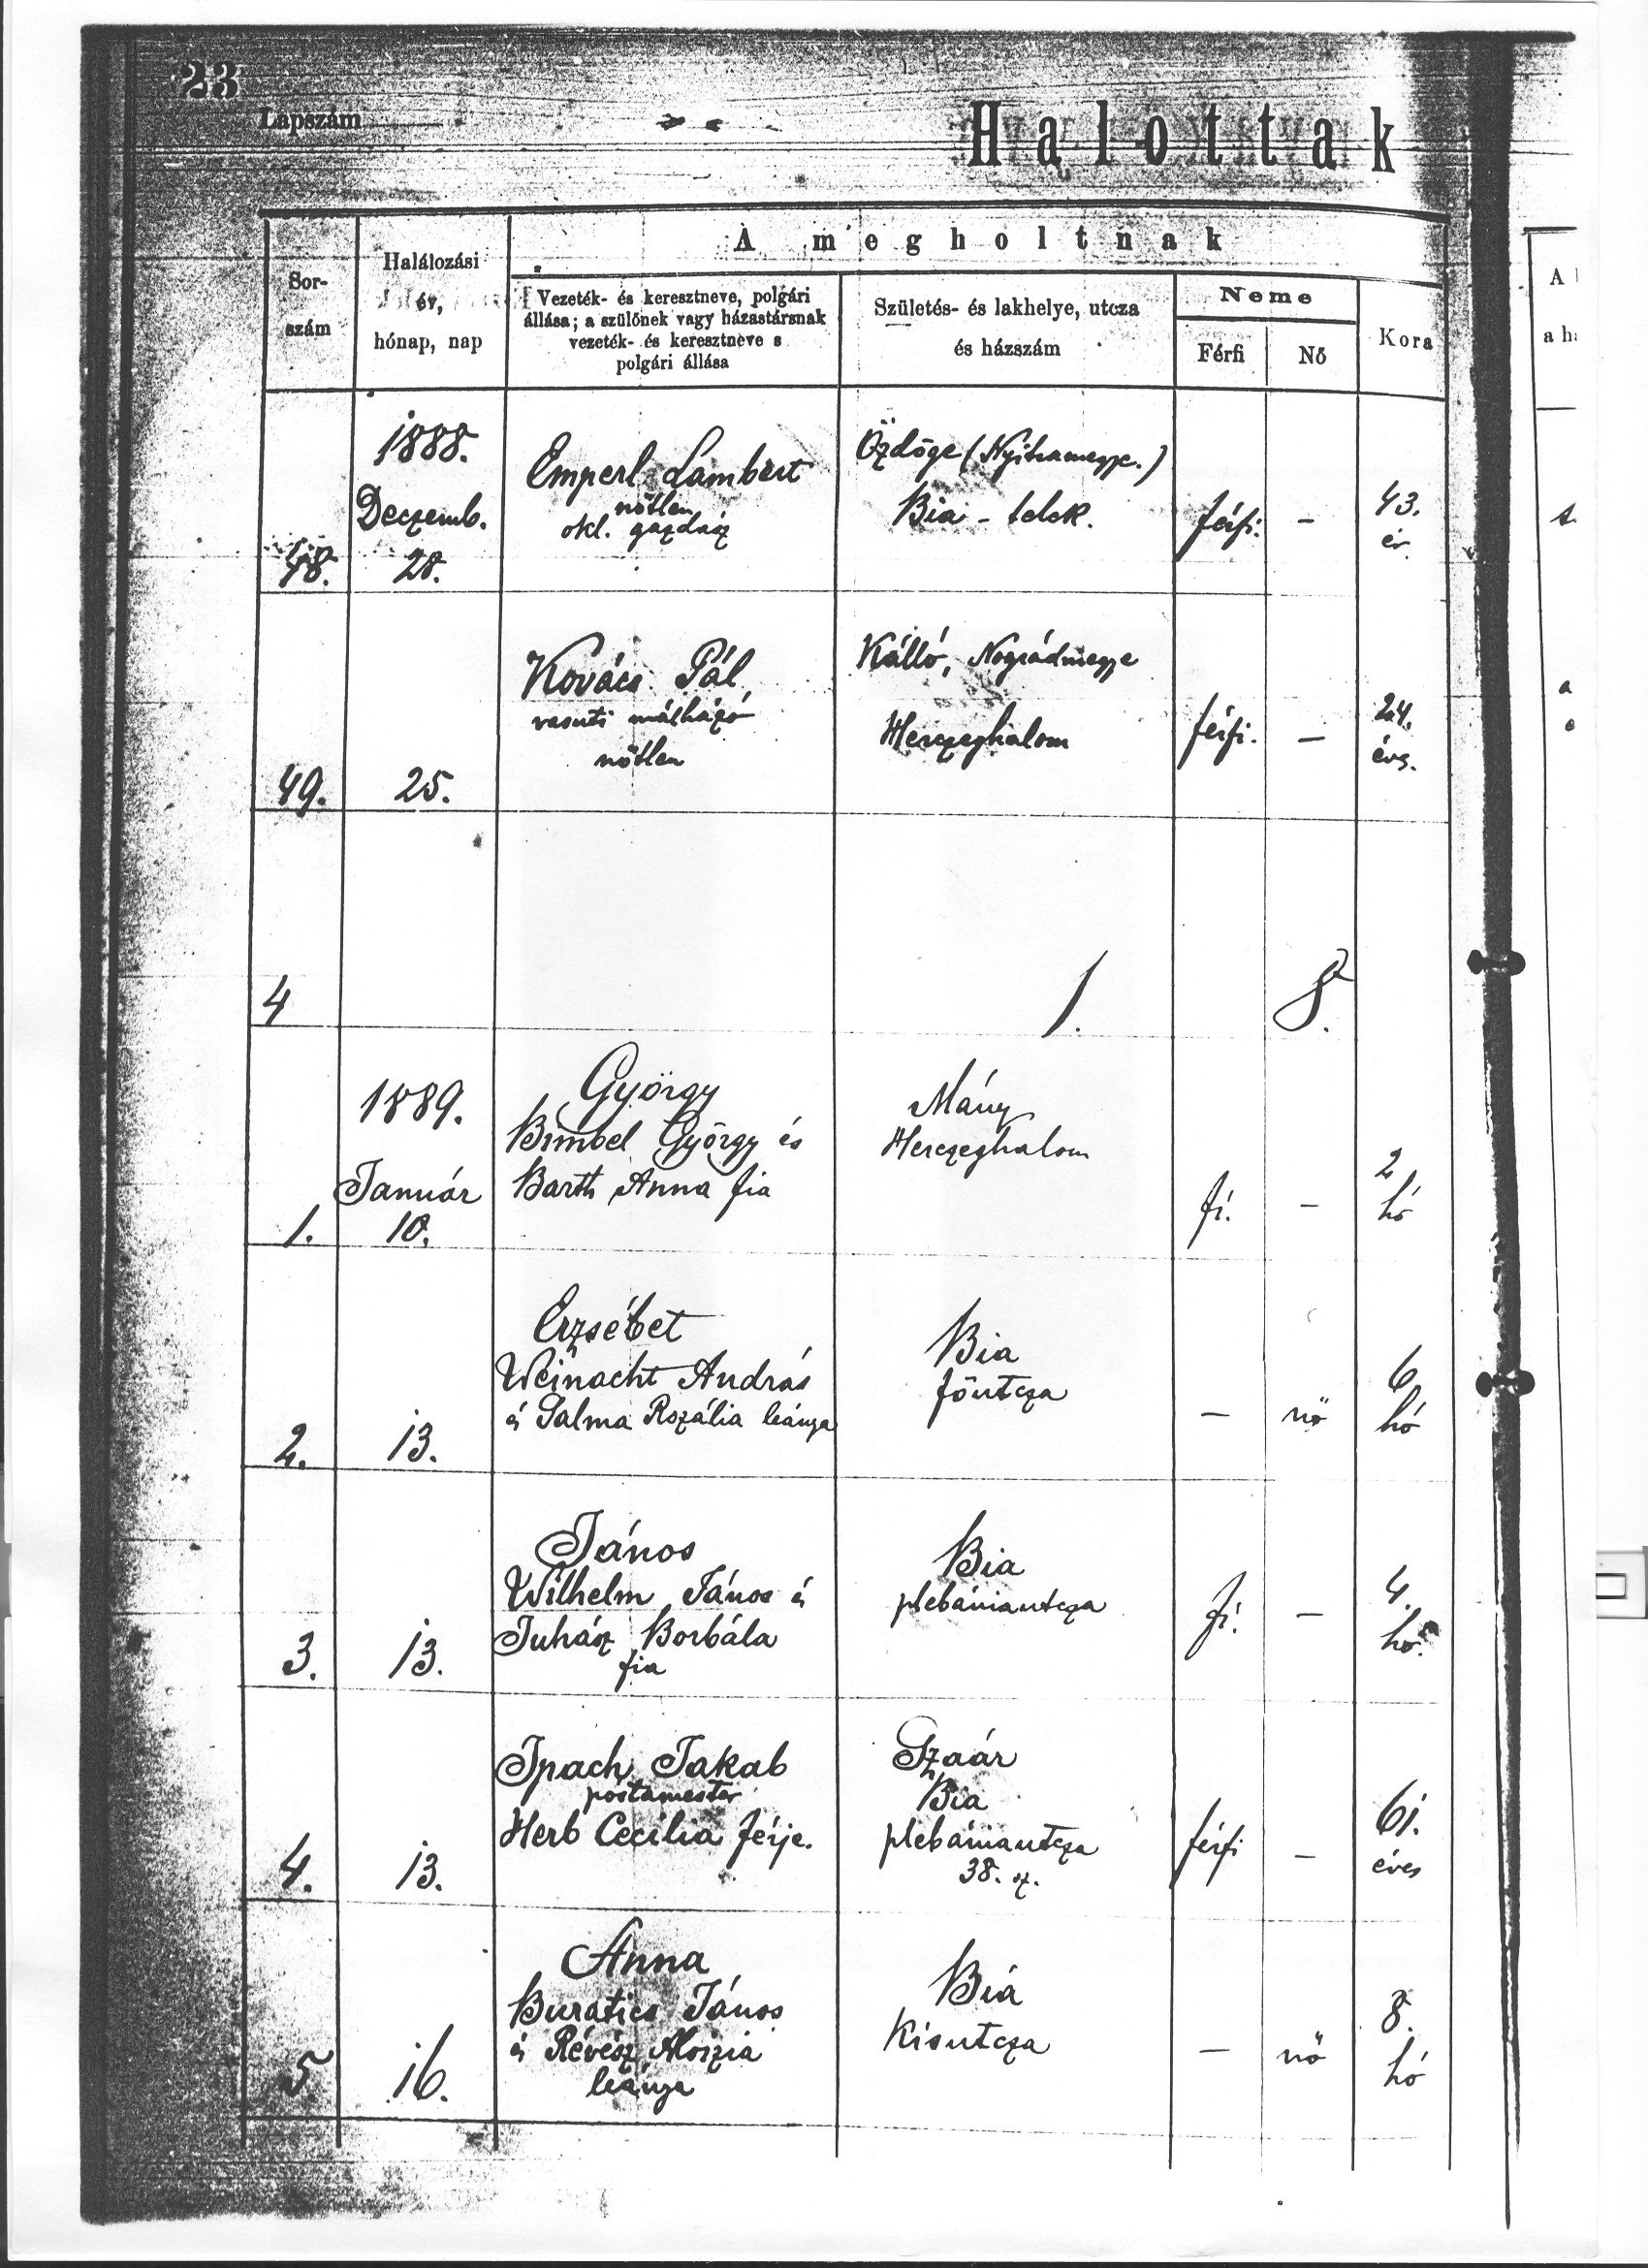 23
Lapszám
Halottak
A megholtnak
Sor-
szám
Halálozási
év,
hónap, nap
Vezeték- és keresztneve, polgári
állása; a szülőnek vagy házastársnak
vezeték- és keresztneve s
polgári állása
Születés- és lakhelye, utcza
és házszám
Neme
Férfi
Nő
Kora
48.
1888.
Deczemb.
28.
Emperl Lambert
nőtlen
okl. gazdász
Özdöge (Nyitramegye.)
Bia - telek.
férfi.
–
43.
év.
49.
25.
Kovács Pál
vasuti málházó
nőtlen
Kálló, Nográdmegye
Herczeghalom
férfi.
–
24.
évs.
4
1.
8.
1.
1889.
Január
10.
György
Bimbel György és
Barth Anna fia
Mány
Herczeghalom
fi.
–
2
hó
2.
13.
Erzsébet
Weinacht András
és Salma Rozália leánya
Bia
főutcza
–
nő
6
hó
3.
13.
János
Wilhelm János és
Juhász Borbála
fia
Bia
plebániautcza
fi.
–
4.
hó.
4.
13.
Ipach Jakab
postamester
Herb Cecilia férje.
Szaár
Bia
plebániautcza
38. sz.
férfi
–
61.
éves
5.
16.
Anna
Buratics János
és Révész Aloizia
leánya
Bia
Kisutcza
–
nő
8.
hó